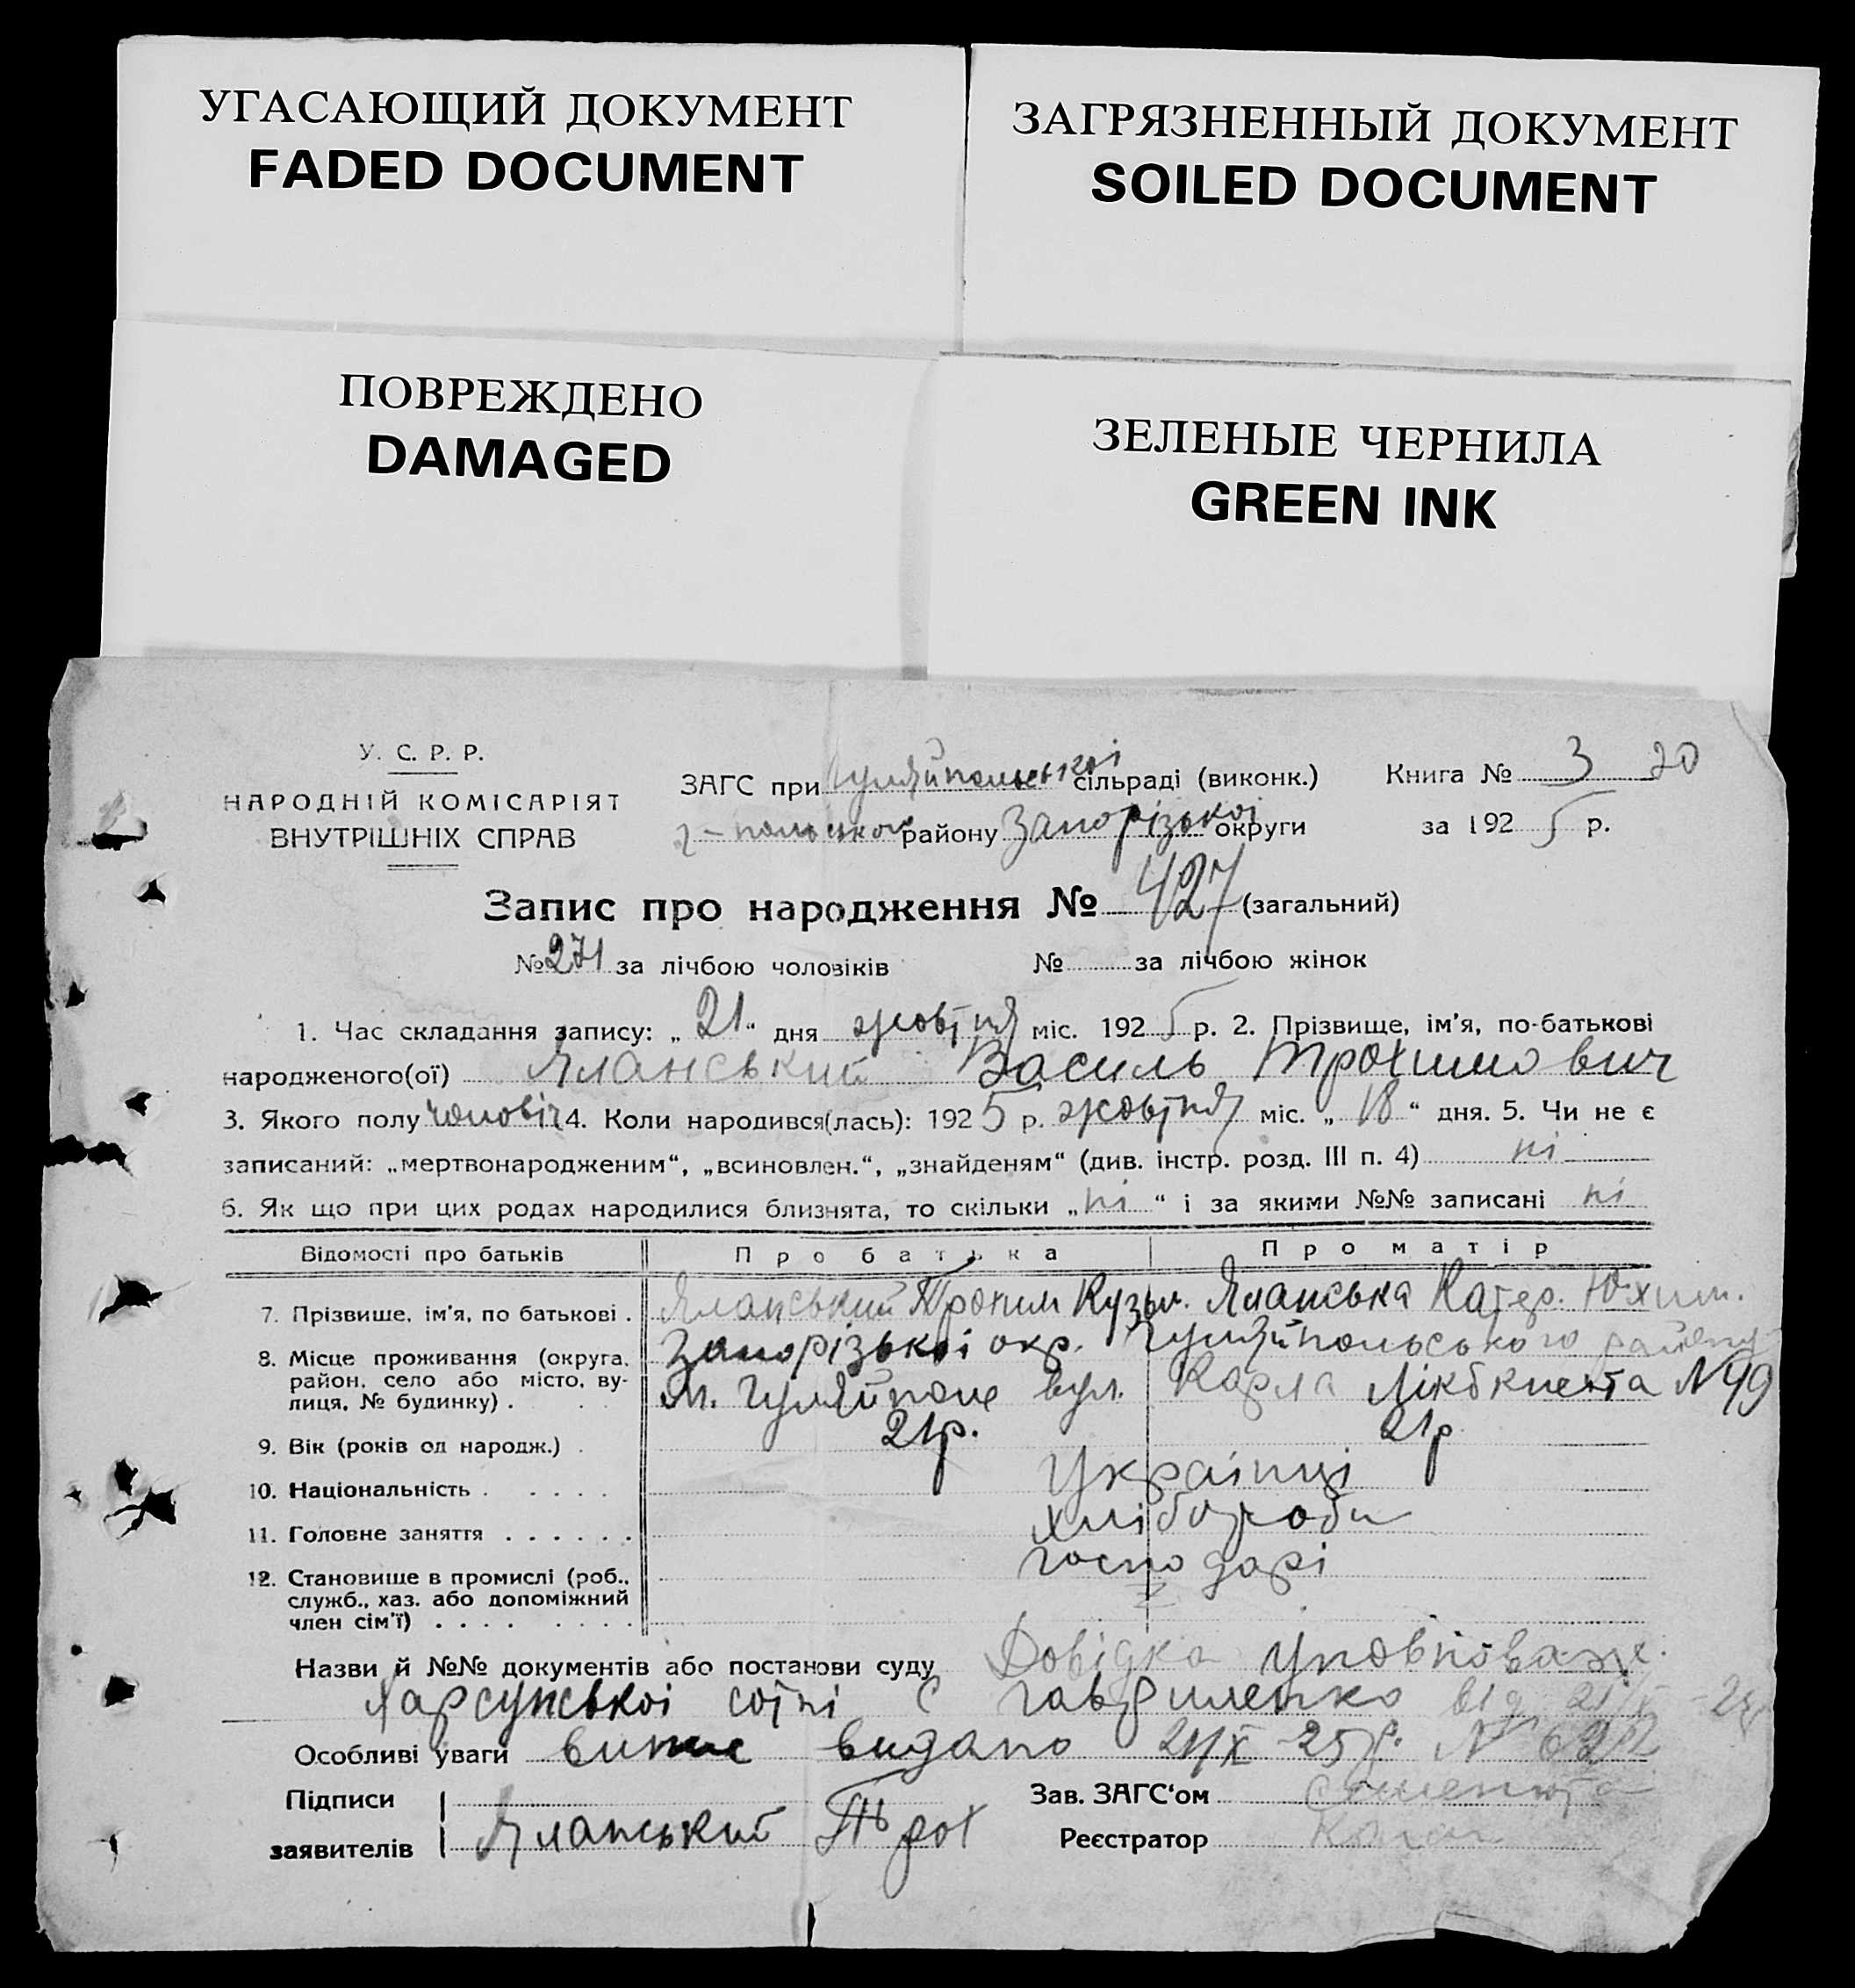 УГАСАЮЩИЙ ДОКУМЕНТ
FADED DOCUMENT
ЗАГРЯЗНЕННЫЙ ДОКУМЕНТ
SOILED DOCUMENT
ПОВРЕЖДЕНО
DAMAGED
ЗЕЛЕНЫЕ ЧЕРНИЛА
GREEN INK
У. С. Р. Р.
НАРОДНІЙ КОМІСАРІЯТ
ВНУТРІШНІХ СПРАВ
ЗАГС при Гуляйпольські сільраді (виконк.)
Г-польського району Запорізької округи
Книга № 3 20
за 1925 р.
Запис про народження № 427 (загальний)
№ 271 за лічбою чоловіків № за лічбою жінок
1. Час складання запису: „ 21 “ дня жовтня міс. 1925 р. 2. Прізвище, ім'я, по-батькові
народженого(ої) Яланський Василь Трохимович
3. Якого полу чоловіч 4. Коли народився(лась): 1925 р. жовтня міс. „ 18 “ дня. 5. Чи не є
записаний: „мертвонародженим“, „всиновлен.“, „знайденям“ (див. інстр. розд. III п. 4) ні
6. Як що при цих родах народилися близнята, то скільки „ ні “ і за якими №№ записані ні
Відомості про батьків Про батька Про матір
7. Прізвише, ім'я, по батькові . Яланський Трохим Кузьм. Яланська Катер. Юхим.
8. Місце проживання (округа, район, село або місто, вулиця, № будинку) . Запорізької окр. Гуляйпольського району
м. Гуляйполе вул. Карла Лікбкнехта N 49
9. Вік (років од народж.) . 21р. 21р
10. Національність . . . . . Українці
11. Головне заняття . . . . . . хлібороби
12. Становище в промислі (роб., служб., хаз. або допоміжний член сім'ї) . . . . . . . . господарі
Назви й №№ документів або постанови суду Довідка уповноваже.
сотні С Гавриленко від 21/X - 25
Особливі уваги випис видано 21/X - 25р. N
Підписи
заявителів Яланський Трох
Зав. ЗАГС‘ом
Реєстратор